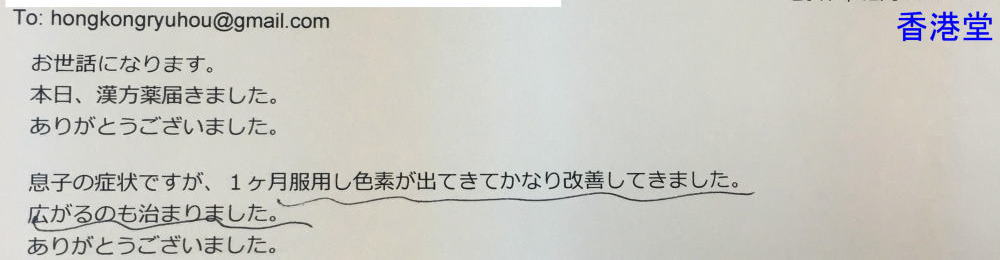 To: hongkongryuhou@gmail.com
香港堂
お世話になります。
本日、漢方薬届きました。
ありがとうございました。
息子の症状ですが、１ヶ月服用し色素が出てきてかなり改善してきました。
広がるのも治まりました。
ありがとうございました。